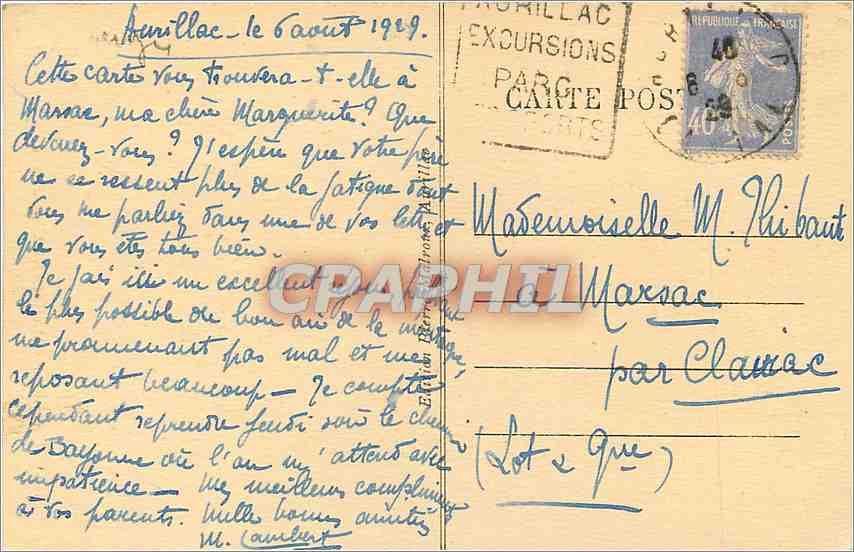 Aurillac - le 6 aout 1929.
Cette carte vous trouvera-t-elle à
Marsac, ma chère Marguerite? Que
devenez-vous? J'espère que votre père
ne se ressent plus de la fatigue dont
vous me parliez dans une de vos lett et
que vous êtes tous bien.
Je fais ici un excellent séjour
le plus possible de bon air de la montagne,
me promenant pas mal et me
reposant beaucoup - Je compte
cependant reprendre jeudi soir le chemin
de Bayonne où l'on m'attend avec
impatience - Mes meilleurs compliments
à vos parents. Mille bonnes amitiés
M. Lambert
Edition Pierre Malroux, Aurillac
AURILLAC
EXCURSIONS
PARC
SPORTS
CARTE POST
REPUBLIQUE FRANÇAISE
40
POSTES
Mademoiselle M. Thibaut
à Marsac
par Clairac
(Lot & Gne)
CPAPHIL